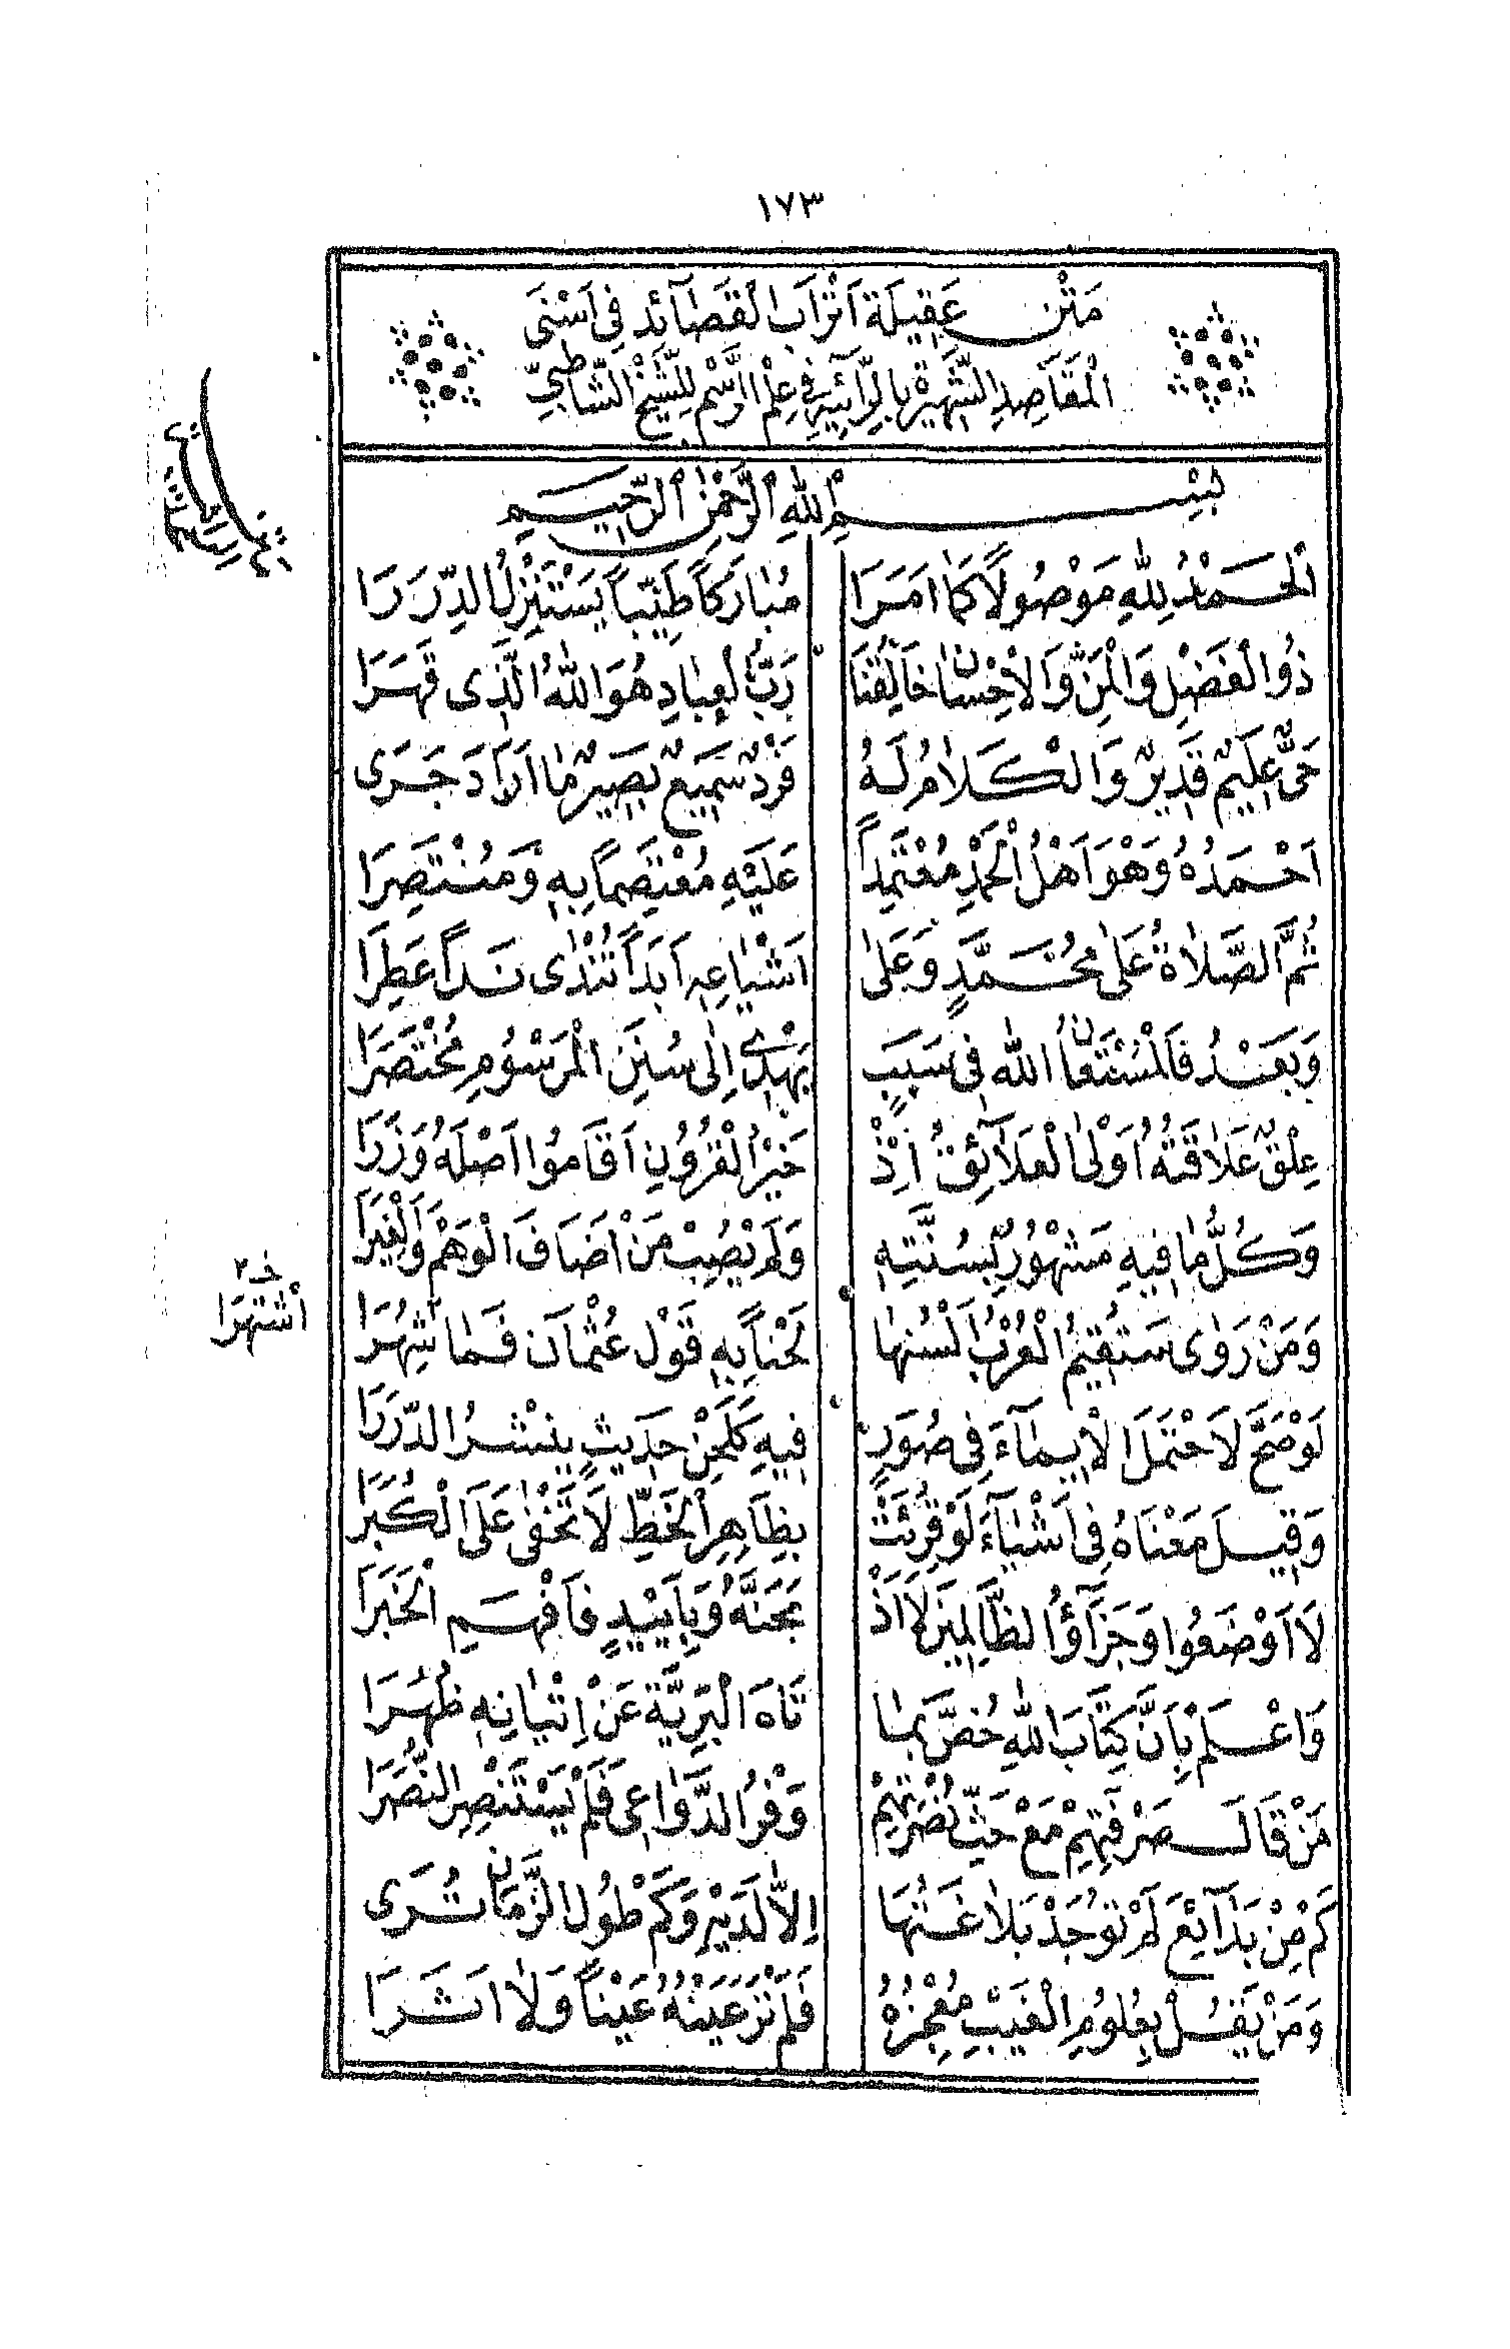 ١٧٣
مَتْن عَقِيلَة اَتْرَابِ الْقَصَآئِدِ فِى اَسْنَى
الْمَقَاصِدِ الشَّهِيرَةِ بِالرَّآئِيَّةِ فِى عِلْمِ الرَّسْمِ لِلشَّيْخِ الشَّاطِبِىِّ
بِسْمِ اللهِ الرَّحْمٰنِ الرَّحِيمِ
اَلْحَمْدُ لِلّٰهِ مَوْصُولًا كَمَا اَمَرَا مُبَارَكًا طَيِّبًا يَسْتَنْزِلُ الدِّرَرَا
ذُو الْفَضْلِ وَالْمَنِّ وَالْاِحْسَانِ خَالِقُنَا رَبُّ الْعِبَادِ هُوَ اللّٰهُ الَّذِى قَهَرَا
حَىٌّ عَلِيمٌ قَدِيرٌ وَالْكَلَامُ لَهُ فَرْدٌ سَمِيعٌ بَصِيرٌ مَا اَرَادَ جَرَى
اَحْمَدُهُ وَهْوَ اَهْلُ الْحَمْدِ مُعْتَمِدًا عَلَيْهِ مُعْتَصِمًا بِهِ وَمُنْتَصِرَا
ثُمَّ الصَّلَاةُ عَلَى مُحَمَّدٍ وَعَلَى اَشْيَاعِهِ اَبَدًا تُنْدٰى نَدًا عَطِرَا
وَبَعْدُ فَالْمُسْتَعَانُ اللّٰهُ فِى سَبَبٍ يَهْدِى اِلٰى سُنَنِ الْمَرْسُومِ مُخْتَصَرَا
عِلْقٌ عَلَاقَتُهُ اَوْلَى الْعَلَآئِقِ اِذْ خَيْرُ الْقُرُونِ اَقَامُوا اَصْلَهُ وَزَرَا
وَكُلُّ مَا فِيهِ مَشْهُورٌ بِسُنَّتِهِ وَلَمْ يُصِبْ مَنْ اَضَافَ الْوَهْمَ وَالْغِيَرَا
وَمَنْ رَوٰى سَتُقِيمُ الْعُرْبُ اَلْسُنُهَا لَحْنًا بِهِ قَوْلَ عُثْمَانَ فَمَا شُهِرَا
خـ ٢
اَشْتَهَرَا
لَوْ صَحَّ لَاحْتَمَلَ الْاِيمَآءَ فِى صُوَرٍ فِيهِ كَلَحْنِ حَدِيثٍ يَنْثُرُ الدُّرَرَا
وَقِيلَ مَعْنَاهُ فِى اَشْيَآءَ لَوْ قُرِئَتْ بِظَاهِرِ الْخَطِّ لَا تَخْفٰى عَلَى الْكُبَرَا
لَا اَوْضَعُوا وَجَزَآؤُا الظَّالِمِينَ لَا اَذْ بَحَنَّهُ وَبِاَيْيْدٍ فَافْهَمِ الْخَبَرَا
وَاعْلَمْ بِاَنَّ كِتَابَ اللّٰهِ خُصَّ بِمَا تَاهَ الْبَرِيَّةُ عَنْ اِتْيَانِهِ ظُهَرَا
مَنْ قَالَ صَرْفَتُهُمْ مَعْ حَثِّ نُصْرَتِهِمْ وَفْرُ الدَّوَاعِى فَلَمْ يَسْتَنْصِرِ النُّصَرَا
كَمْ مِنْ بَدَآئِعَ لَمْ تُوجَدْ بَلَاغَتُهَا اِلَّا لَدَيْهِ وَكَمْ طُولَ الزَّمَانِ تُرَى
وَمَنْ يَقُلْ بِعُلُومِ الْغَيْبِ مُعْجِزُهُ فَلَمْ تَرَ عَيْنُهُ عَيْنًا وَلَا اَثَرَا